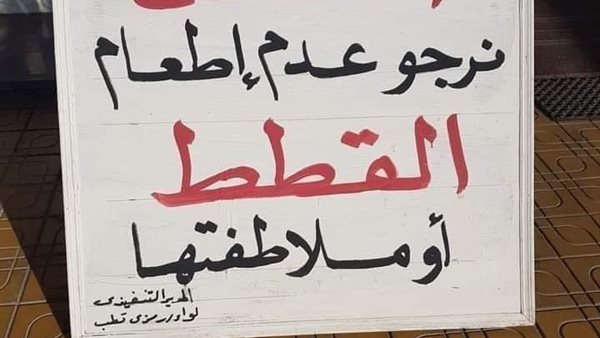 نرجو عدم إطعام
القطط
أو ملاطفتها
المدير التنفيذى
لواء رمزى قطب